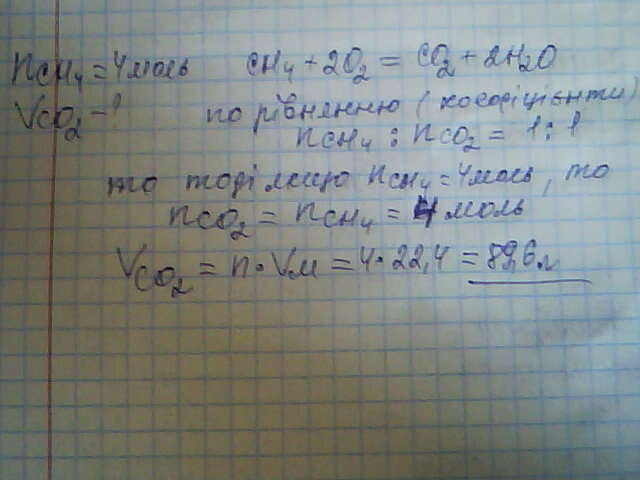 nCH₄ = 4 моль CH₄ + 2O₂ = CO₂ + 2H₂O
VCO₂ - ? по рівнянню (коефіцієнти)
nCH₄ : nCO₂ = 1 : 1
то тоді якщо nCH₄ = 4 моль, то
nCO₂ = nCH₄ = 4 моль
VCO₂ = n · Vм = 4 · 22,4 = 89,6 л